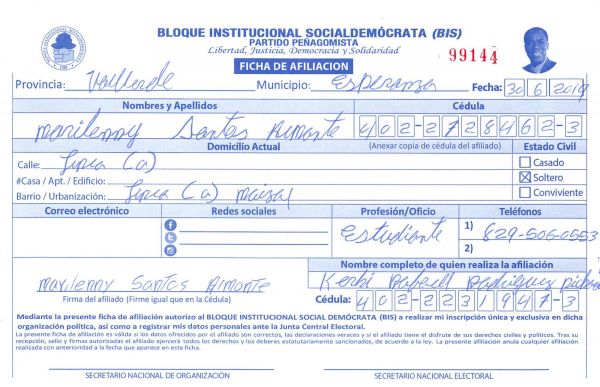 BLOQUE INSTITUCIONAL SOCIALDEMÓCRATA (BIS)
PARTIDO PEÑAGOMISTA
Libertad, Justicia, Democracia y Solidaridad
99144
FICHA DE AFILIACION
Provincia: Valverde Municipio: Esperanza Fecha: 30 6 2019
Nombres y Apellidos Cédula
Marilenny Santos Almonte 402-2728462-3
Domicilio Actual (Anexar copia de cédula del afiliado) Estado Civil
Calle: (a) Casado
#Casa / Apt. / Edificio: Soltero
Barrio / Urbanización: (a) Maizal Conviviente
Correo electrónico Redes sociales Profesión/Oficio Teléfonos
Estudiante 1) 829-506-0553
2)
Nombre completo de quien realiza la afiliación
Marilenny Santos Almonte Kerbi Rafael Rodriguez
Firma del afiliado (Firme igual que en la Cédula) Cédula: 402-2231947-3
Mediante la presente ficha de afiliación autorizo al BLOQUE INSTITUCIONAL SOCIAL DEMÓCRATA (BIS) a realizar mi inscripción única y exclusiva en dicha
organización política, así como a registrar mis datos personales ante la Junta Central Electoral.
La presente ficha de afiliación es válida si los datos ofrecidos por el afiliado son correctos, las declaraciones veraces y si el afiliado tiene el disfrute de sus derechos civiles y políticos. Tras su
recepción, sello y firmas autorizadas el afiliado ejercerá todos los derechos y los deberes estatutariamente sancionados, de acuerdo a la Ley. La presente afiliación anula cualquier afiliación
realizada con anterioridad a la fecha que aparece en esta ficha.
SECRETARIO NACIONAL DE ORGANIZACIÓN SECRETARIO NACIONAL ELECTORAL